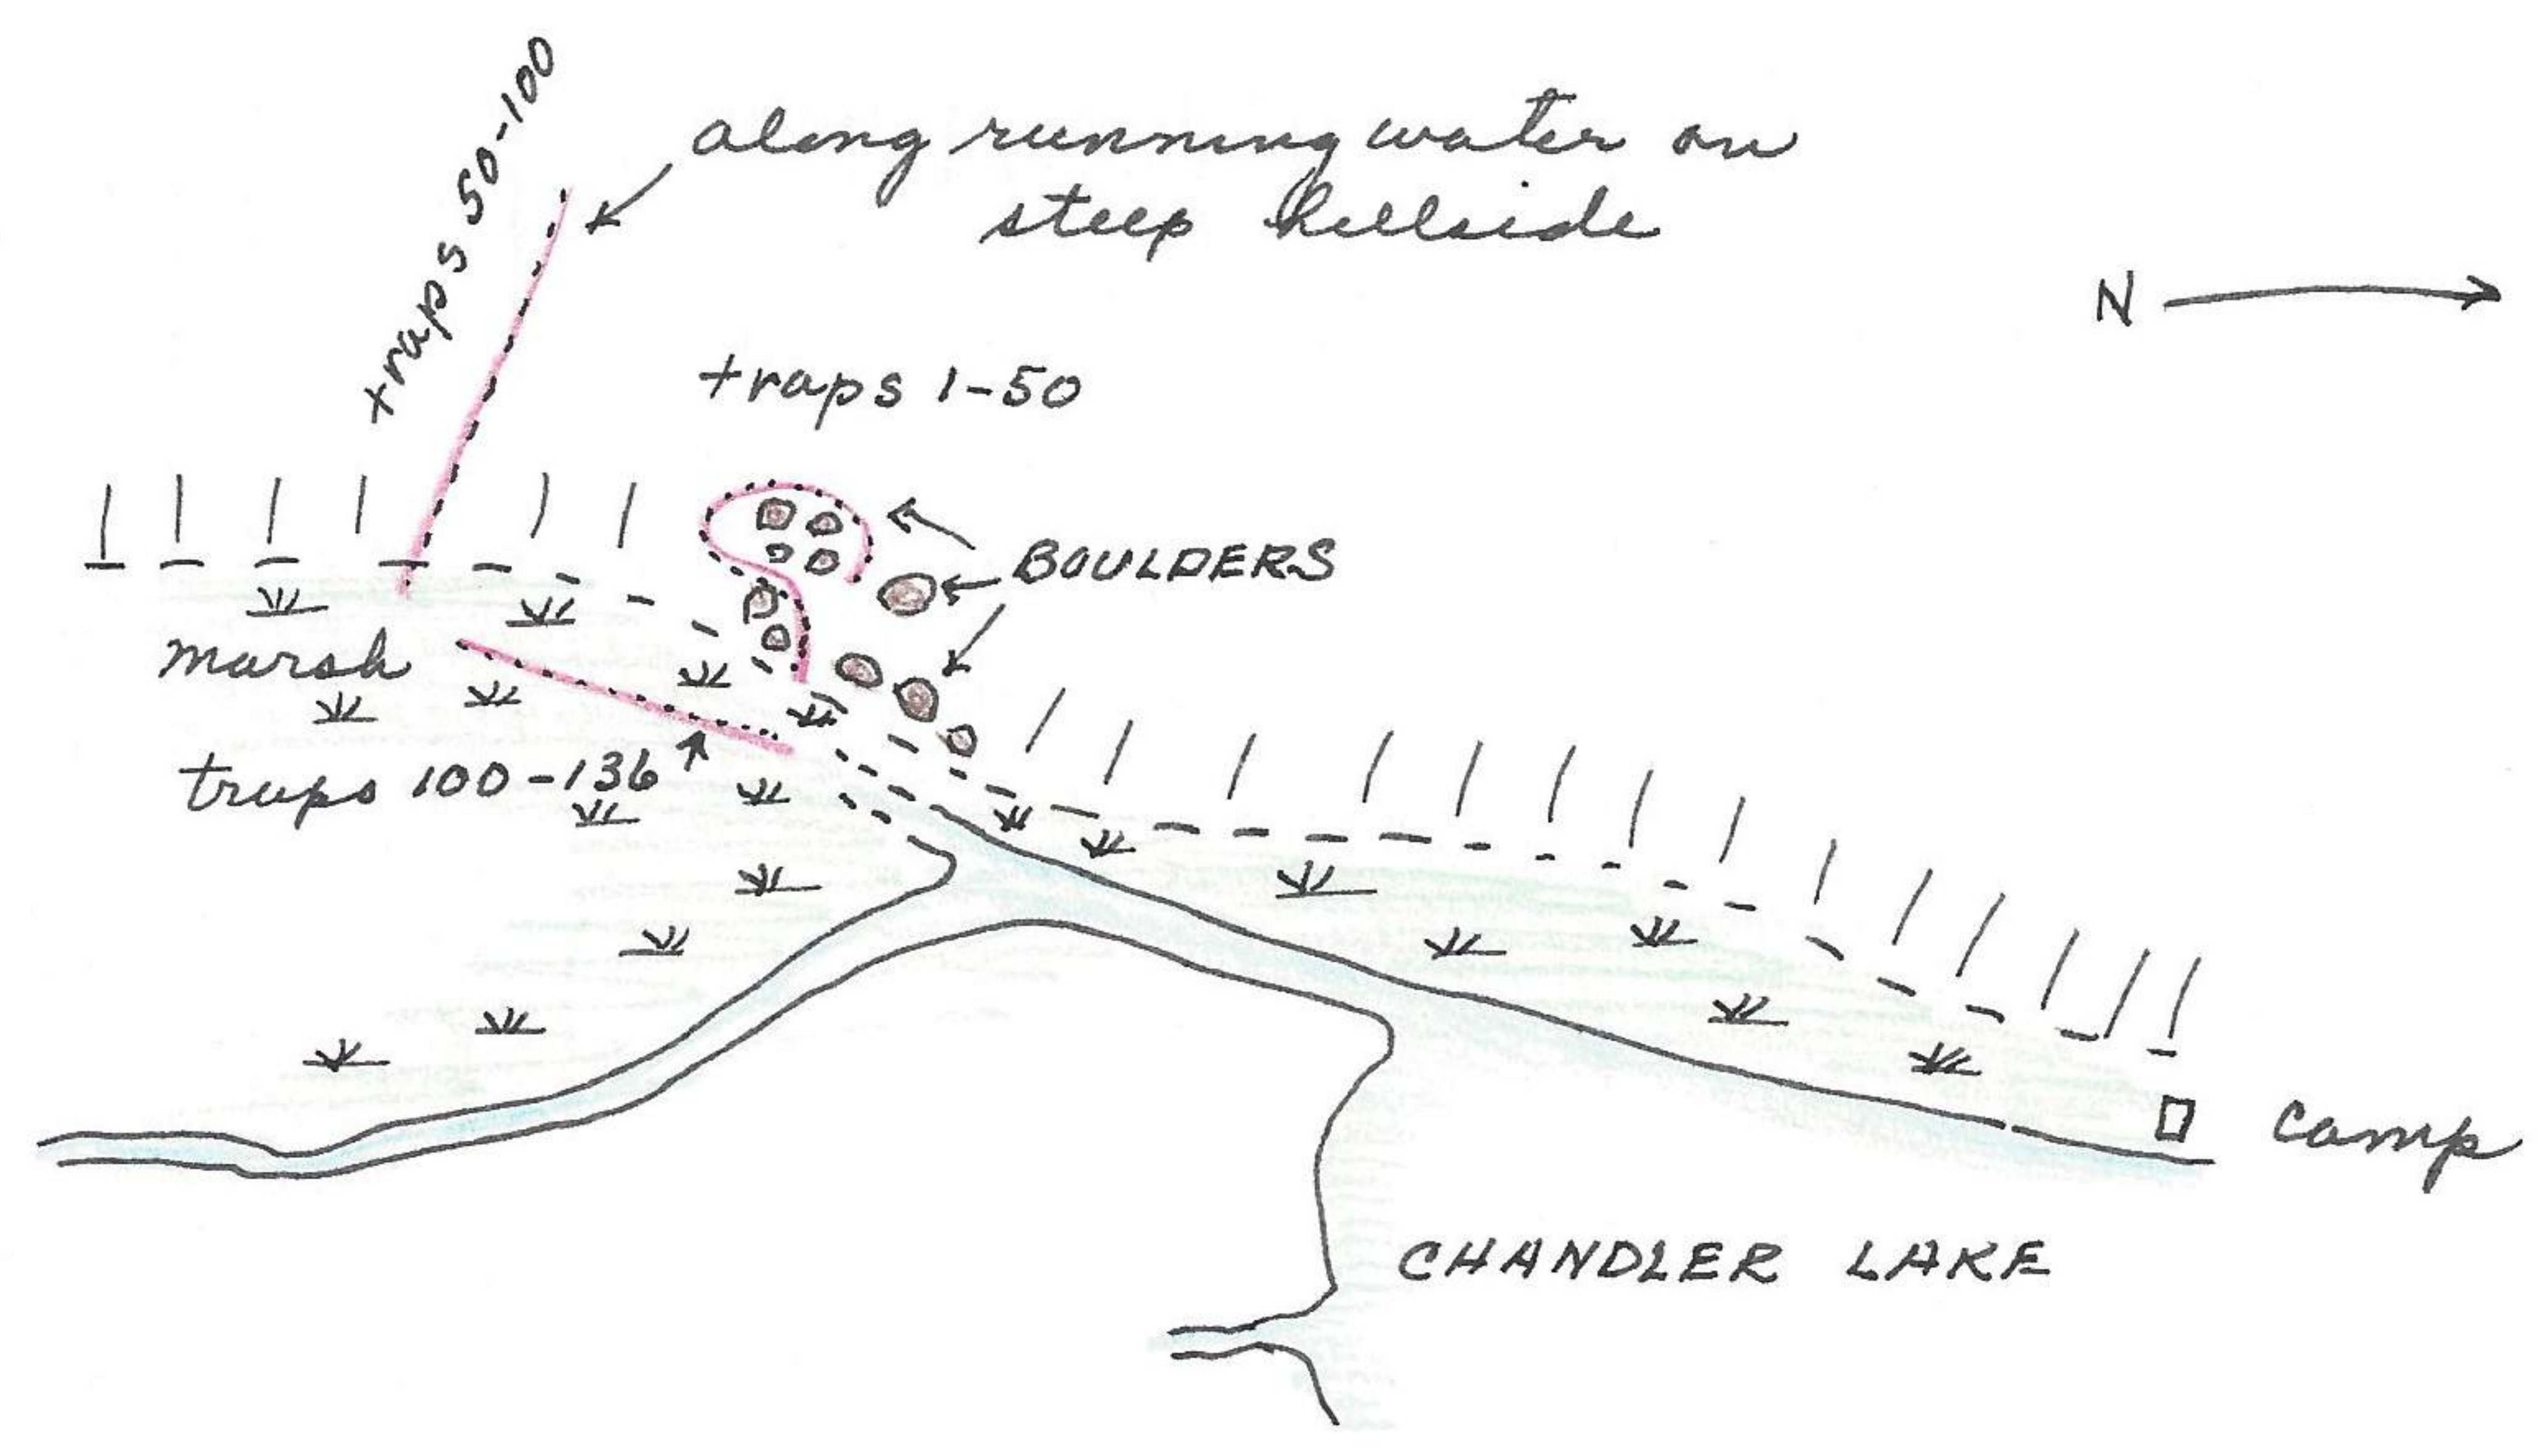 traps 50-100
along running water on
steep hillside
N
traps 1-50
BOULDERS
marsh
traps 100-136
Camp
CHANDLER LAKE